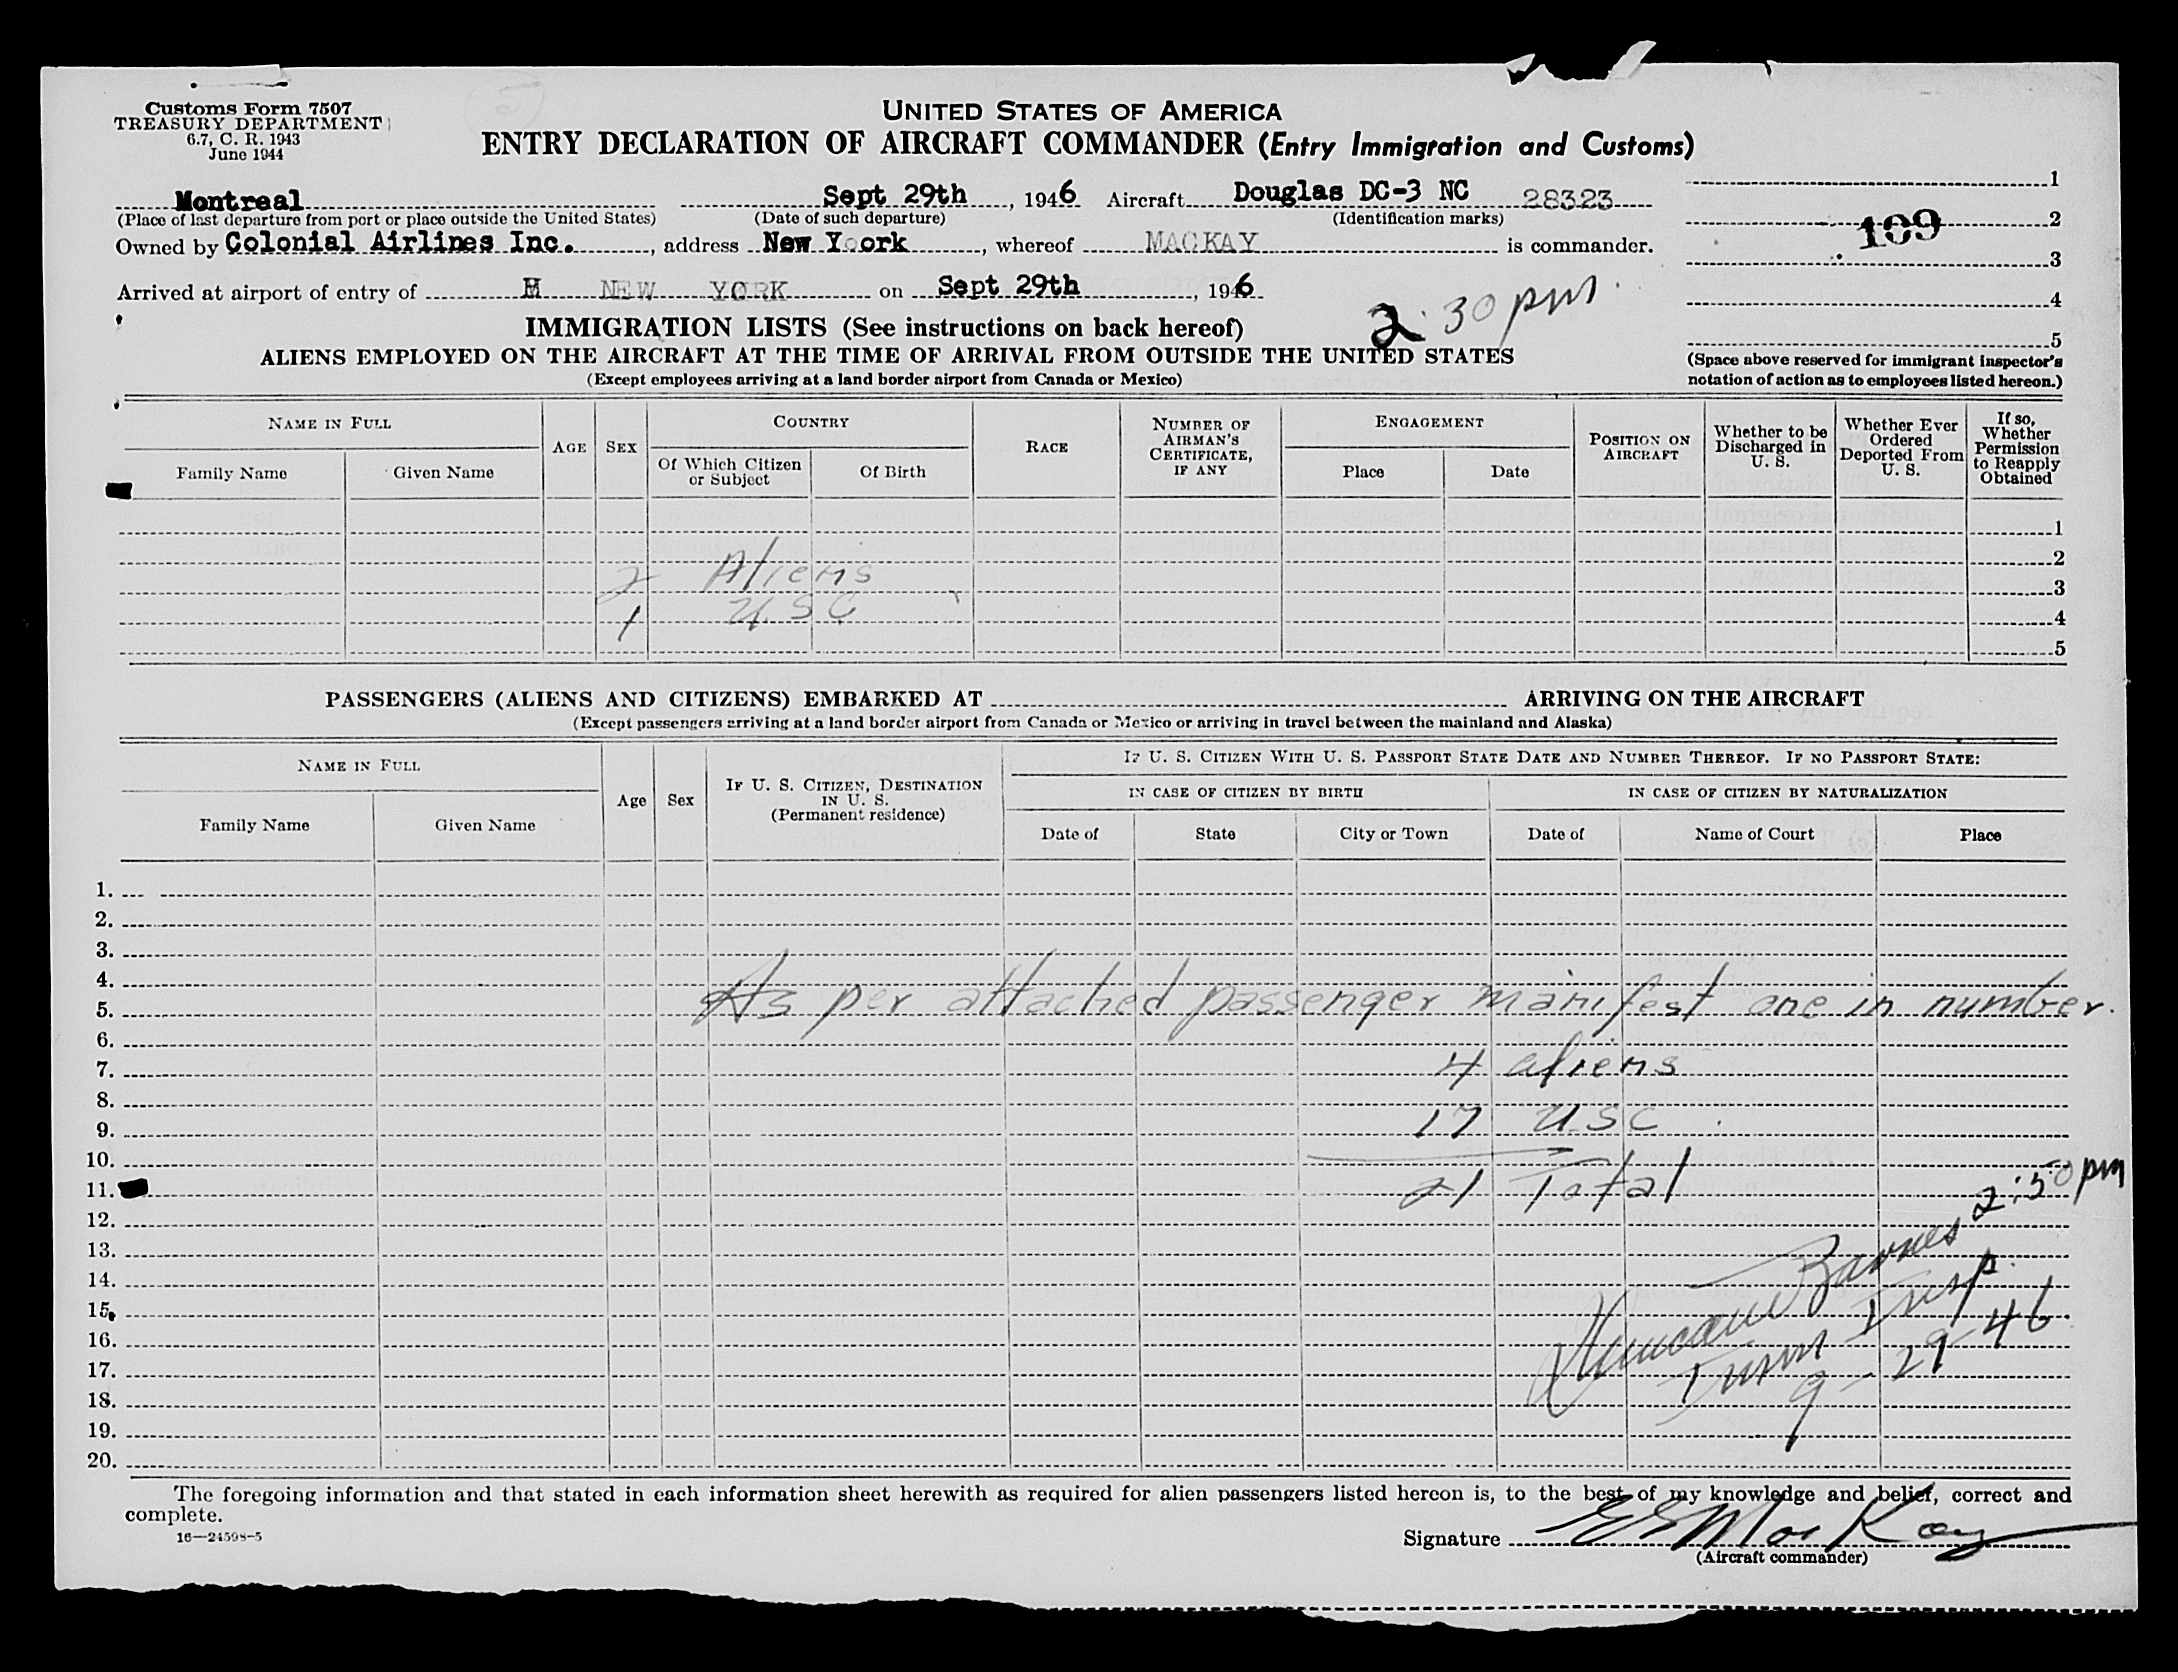 Customs Form 7507
TREASURY DEPARTMENT
6.7, C. R. 1943
June 1944
UNITED STATES OF AMERICA
ENTRY DECLARATION OF AIRCRAFT COMMANDER (Entry Immigration and Customs)
Montreal Sept 29th, 1946 Aircraft Douglas DC-3 NC 28323
(Place of last departure from port or place outside the United States) (Date of such departure) (Identification marks)
Owned by Colonial Airlines Inc., address New Y ork, whereof MACKAY is commander.
Arrived at airport of entry of NEW YORK on Sept 29th, 1946
2:30 pm.
1
2
109
3
4
5
(Space above reserved for immigrant inspector's notation of action as to employees listed hereon.)
IMMIGRATION LISTS (See instructions on back hereof)
ALIENS EMPLOYED ON THE AIRCRAFT AT THE TIME OF ARRIVAL FROM OUTSIDE THE UNITED STATES
(Except employees arriving at a land border airport from Canada or Mexico)
NAME IN FULL
Family Name
Given Name
AGE
SEX
COUNTRY
Of Which Citizen or Subject
Of Birth
RACE
NUMBER OF AIRMAN'S CERTIFICATE, IF ANY
ENGAGEMENT
Place
Date
POSITION ON AIRCRAFT
Whether to be Discharged in U. S.
Whether Ever Ordered Deported From U. S.
If so, Whether Permission to Reapply Obtained
1
2
2 Aliens
3
1 U.S.C
4
5
PASSENGERS (ALIENS AND CITIZENS) EMBARKED AT ARRIVING ON THE AIRCRAFT
(Except passengers arriving at a land border airport from Canada or Mexico or arriving in travel between the mainland and Alaska)
NAME IN FULL
Family Name
Given Name
Age
Sex
IF U. S. CITIZEN, DESTINATION IN U. S. (Permanent residence)
IF U. S. CITIZEN WITH U. S. PASSPORT STATE DATE AND NUMBER THEREOF. IF NO PASSPORT STATE:
IN CASE OF CITIZEN BY BIRTH
IN CASE OF CITIZEN BY NATURALIZATION
Date of
State
City or Town
Date of
Name of Court
Place
1.
2.
3.
4.
5. As per attached passenger manifest one in number.
6.
7. 4 aliens
8.
9. 17 USC
10.
11. 21 Total
2:50 pm
12.
13. Barnes
14.
15. Insp.
16.
17. Imm 9-29-46
18.
19.
20.
The foregoing information and that stated in each information sheet herewith as required for alien passengers listed hereon is, to the best of my knowledge and belief, correct and
complete.
16—24598-5
Signature E S MacKay
(Aircraft commander)